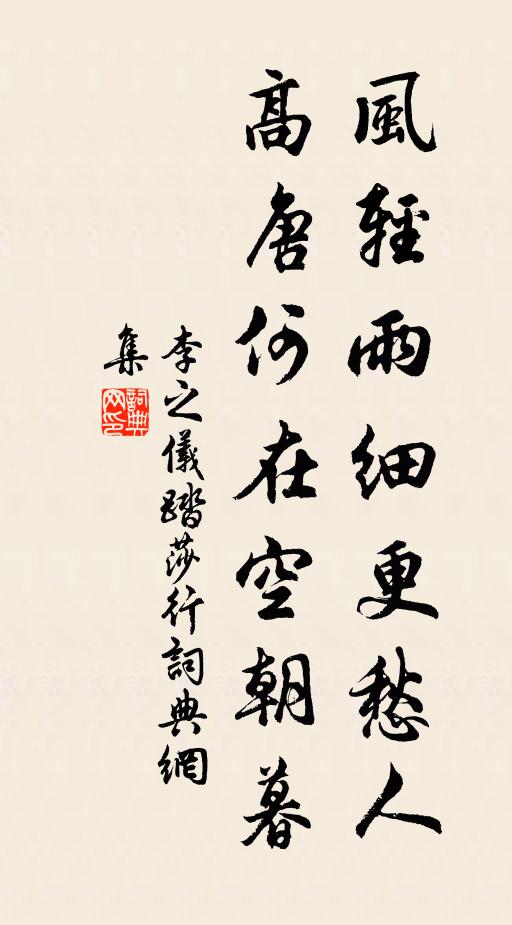 風輕雨細更愁人
高唐何在空朝暮
李之儀踏莎行詞典網
集
詞典
网印